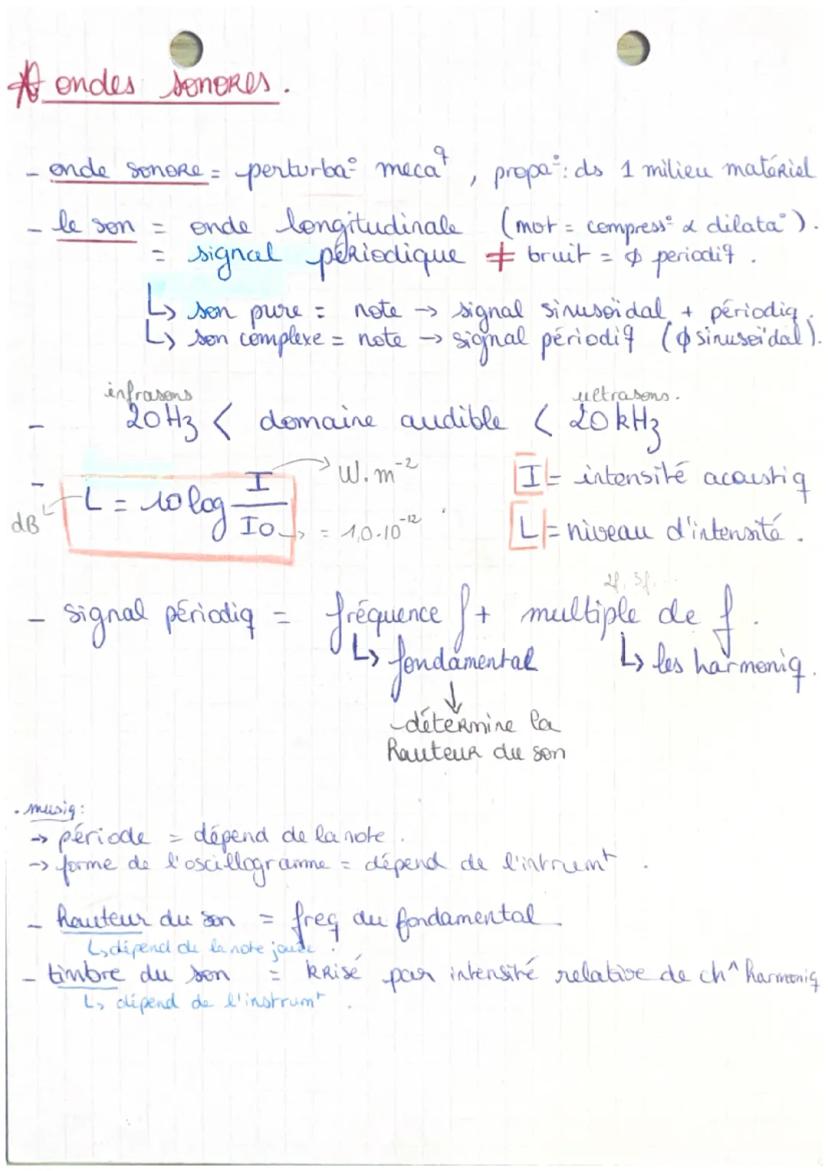 ondes sonores.
- onde sonore = perturba° meca^q, propa°: ds 1 milieu matériel
- le son = onde longitudinale (mot = compress° & dilata°).
= signal périodique ≠ bruit = ϕ periodiq.
↳ son pure = note → signal sinusoïdal + périodiq.
↳ son complexe = note → signal périodiq (ϕ sinusoïdal).
infrasons ultrasons.
- 20Hz < domaine audible < 20kHz
- L = 10 log I/I0 → W.m⁻² I = intensité acoustiq
dB → = 1,0.10⁻¹² L = niveau d'intensité.
2f, 3f...
- signal périodiq = fréquence f + multiple de f.
↳ fondamental ↳ les harmoniq.
↓
détermine la
hauteur du son
. musiq:
→ période = dépend de la note.
→ forme de l'oscillogramme = dépend de l'intrum^t.
- hauteur du son = freq du fondamental
↳ dépend de la note jouée.
- timbre du son = krisé par intensité relative de ch^ harmoniq
↳ dépend de l'instrum^t.